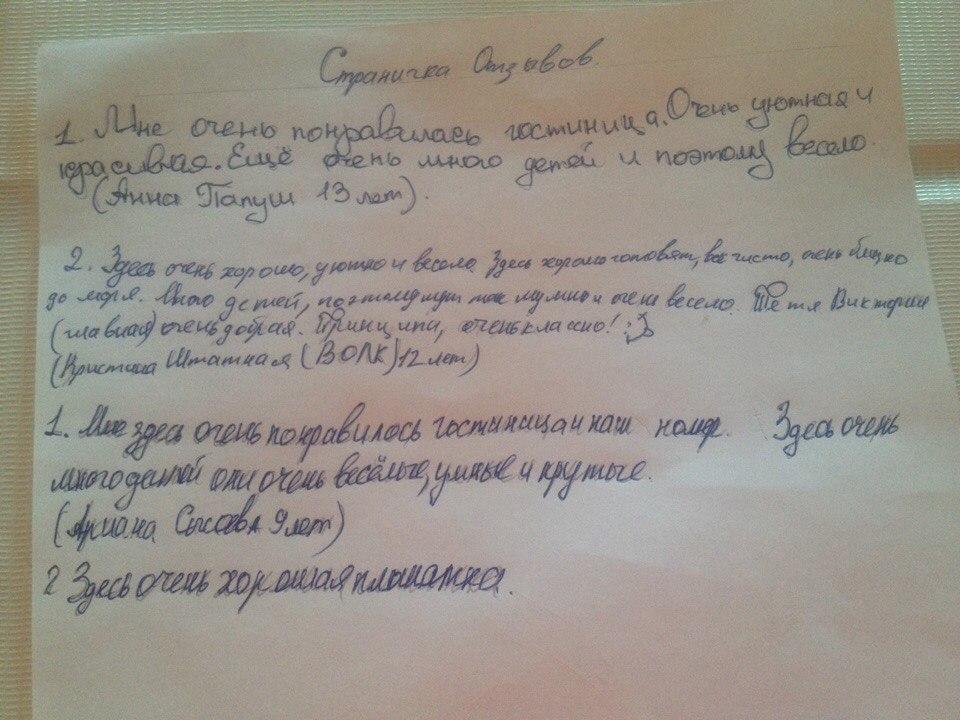 Страничка Отзывов.
1. Мне очень понравилась гостиница. Очень уютная и
красивая. Ещё очень много детей и поэтому весело.
(Анна Папуш 13 лет).
2. Здесь очень хорошо, уютно и весело. Здесь хорошо готовят, все чисто, очень близко
до моря. Много детей, поэтому тут так шумно и очень весело. Тётя Виктория
(главная) очень добрая. Принципи, очень классно! :)
(Кристина Штатная (ВОЛК) 12 лет)
1. Мне здесь очень понравилось гостиница и наш номер. Здесь очень
много детей они очень весёлые, умные и крутые.
(Ариана Сысоева 9 лет)
2 Здесь очень хорошая